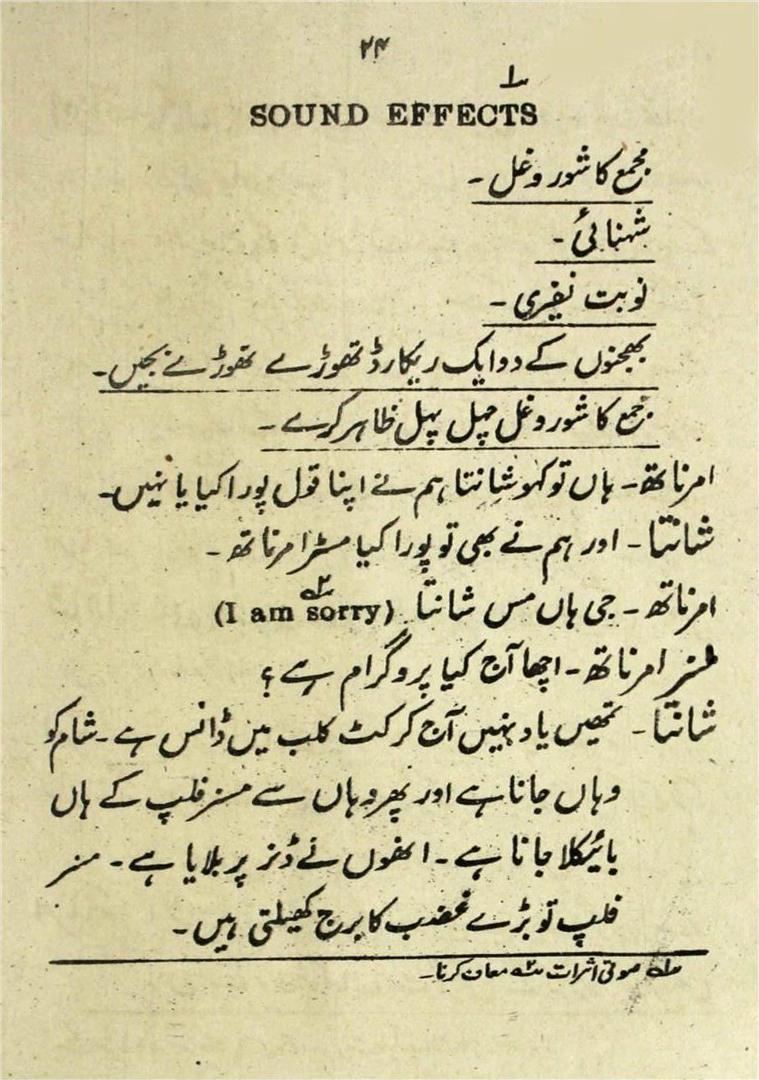 ۲۴
SOUND EFFECTS ۱؎
مجمع کا شور و غل ۔
شہنائی ۔
نوبت نفیری ۔
بھجنوں کے دو ایک ریکارڈ تھوڑے تھوڑے بجیں ۔
مجمع کا شور و غل چہل پہل ظاہر کرے ۔
امرناتھ ۔ ہاں تو کہو شانتا ہم نے اپنا قول پورا کیا یا نہیں ۔
شانتا ۔ اور ہم نے بھی تو پورا کیا مسٹر امرناتھ ۔
امرناتھ ۔ جی ہاں مس شانتا (I am sorry) ۲؎
مسز امرناتھ ۔ اچھا آج کیا پروگرام ہے ؟
شانتا ۔ تمھیں یاد نہیں آج کرکٹ کلب میں ڈانس ہے ۔ شام کو
وہاں جانا ہے اور پھر وہاں سے مسز فلپ کے ہاں
بائیکلا جانا ہے ۔ انھوں نے ڈنر پر بلایا ہے ۔ مسز
فلپ تو بڑے غضب کا برج کھیلتی ہیں ۔
۱؎ صوتی اثرات ۲؎ معاف کرنا ۔